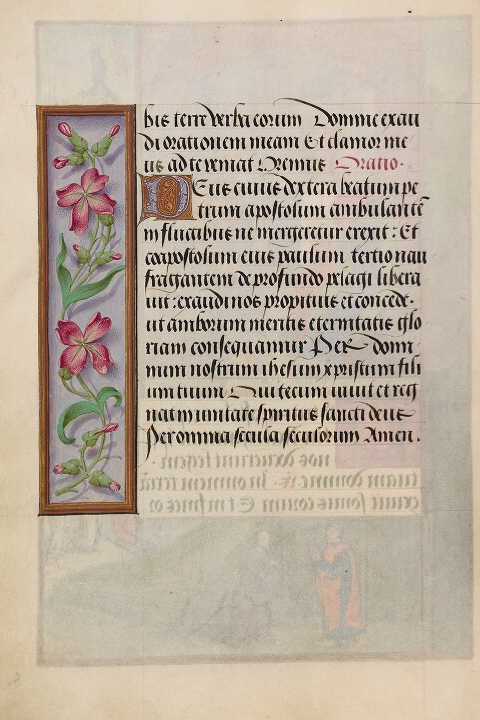 bis terre verba eorum Domine exau
di orationem meam Et clamor me
us ad te veniat Oremus Oratio.
Deus cuius dextera beatum pe
trum apostolum ambulantē
in fluctibus ne mergeretur erexit : Et
coapostolum eius paulum tertio nau
fragantem de profundo pelagi libera
uit : exaudi nos propitius et concede.
ut amborum meritis eternitatis glo
riam consequamur Per domi
num nostrum ihesum xpristum fili
um tuum Qui tecum uiuit et reg
nat in unitate spiritus sancti deus
Per omnia secula seculorum Amen.